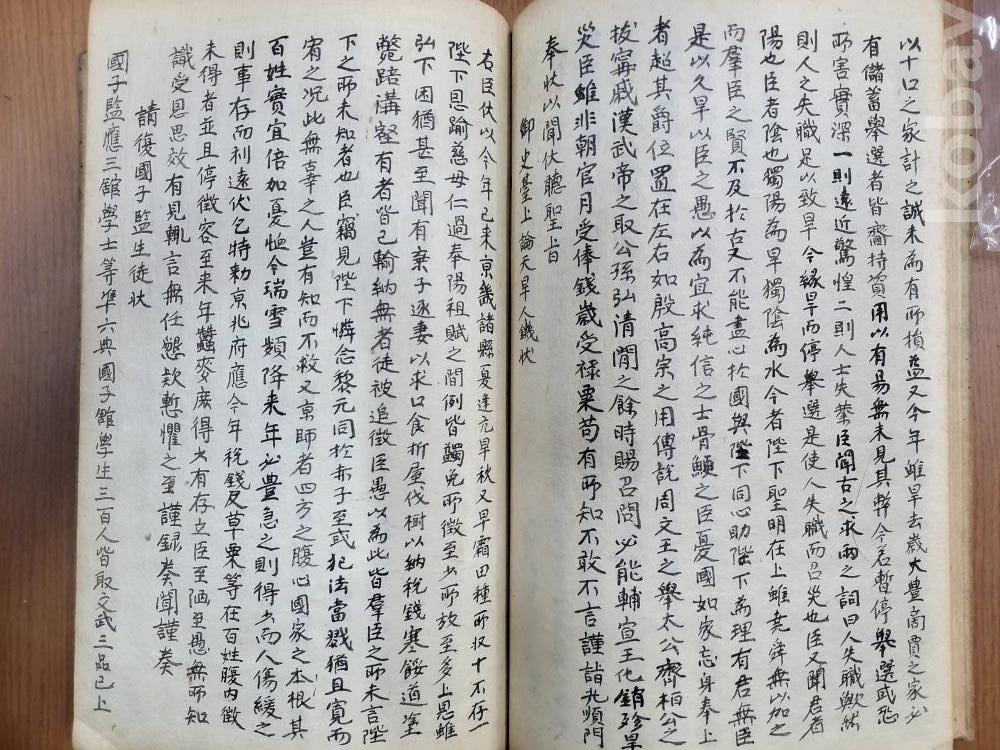 以十口之家計之誠未為有所損益又今年雖旱去歲大豊商賈之家必
有儲蓄舉選者皆齎持資用以有易無未見其弊今若暫停舉選或恐
所害實深一則遠近驚惶二則人士失業臣聞古之求雨之詞曰人失職歟然
則人之失職足以致旱今緣旱而停舉選是使人失職而召災也臣又聞君者
陽也臣者陰也獨陽為旱獨陰為水今者陛下聖明在上雖堯舜無以加之
而羣臣之賢不及於古又不能盡心於國與陛下同心助陛下為理有君無臣
是以久旱以臣之愚以為宜求純信之士骨鯁之臣憂國如家忘身奉上
者超其爵位置在左右如殷高宗之用傅說周文王之舉太公齊桓公之
拔甯戚漢武帝之取公孫弘清閒之餘時賜召問必能輔宣王化銷殄旱
災臣雖非朝官月受俸錢歲受祿粟苟有所知不敢不言謹詣光順門
奉狀以聞伏聽聖旨
御史臺上論天旱人饑狀
右臣伏以今年已來京畿諸縣夏逢亢旱秋又早霜田種所收十不存一
陛下恩踰慈母仁過春陽祖賦之間例皆蠲免所徵至少所放至多上恩雖
弘下困猶甚至聞有棄子逐妻以求口食折屋伐樹以納稅錢寒餒道塗
斃踣溝壑有者皆已輸納無者徒被追徵臣愚以為此皆羣臣之所未言陛
下之所未知者也臣竊見陛下憐念黎元同於赤子至或犯法當戮猶且寬而
宥之况此無辜之人豈有知而不救又京師者四方之腹心國家之本根其
百姓實宜倍加憂恤今瑞雪頻降来年必豊急之則得少而人傷緩之
則事存而利遠伏乞特勅京兆府應今年稅錢及草粟等在百姓腹內徵
未得者並且停徵容至来年蠶麥庶得少有存立臣至陋至愚無所知
識受恩思效有見輒言無任懇款慙懼之至謹録奏聞謹奏
請復國子監生徒狀
國子監應三舘學士等準六典國子舘學生三百人皆取文武三品已上
kobay